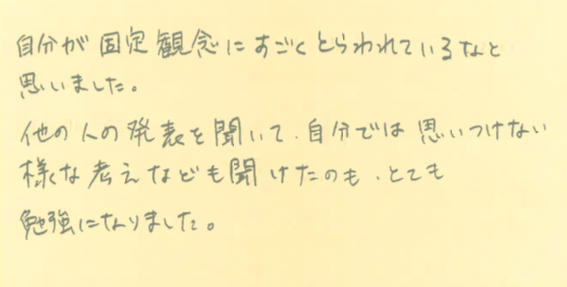 自分が固定観念にすごくとらわれているなと
思いました。
他の人の発表を聞いて、自分では思いつけない
様な考えなども聞けたのも、とても
勉強になりました。